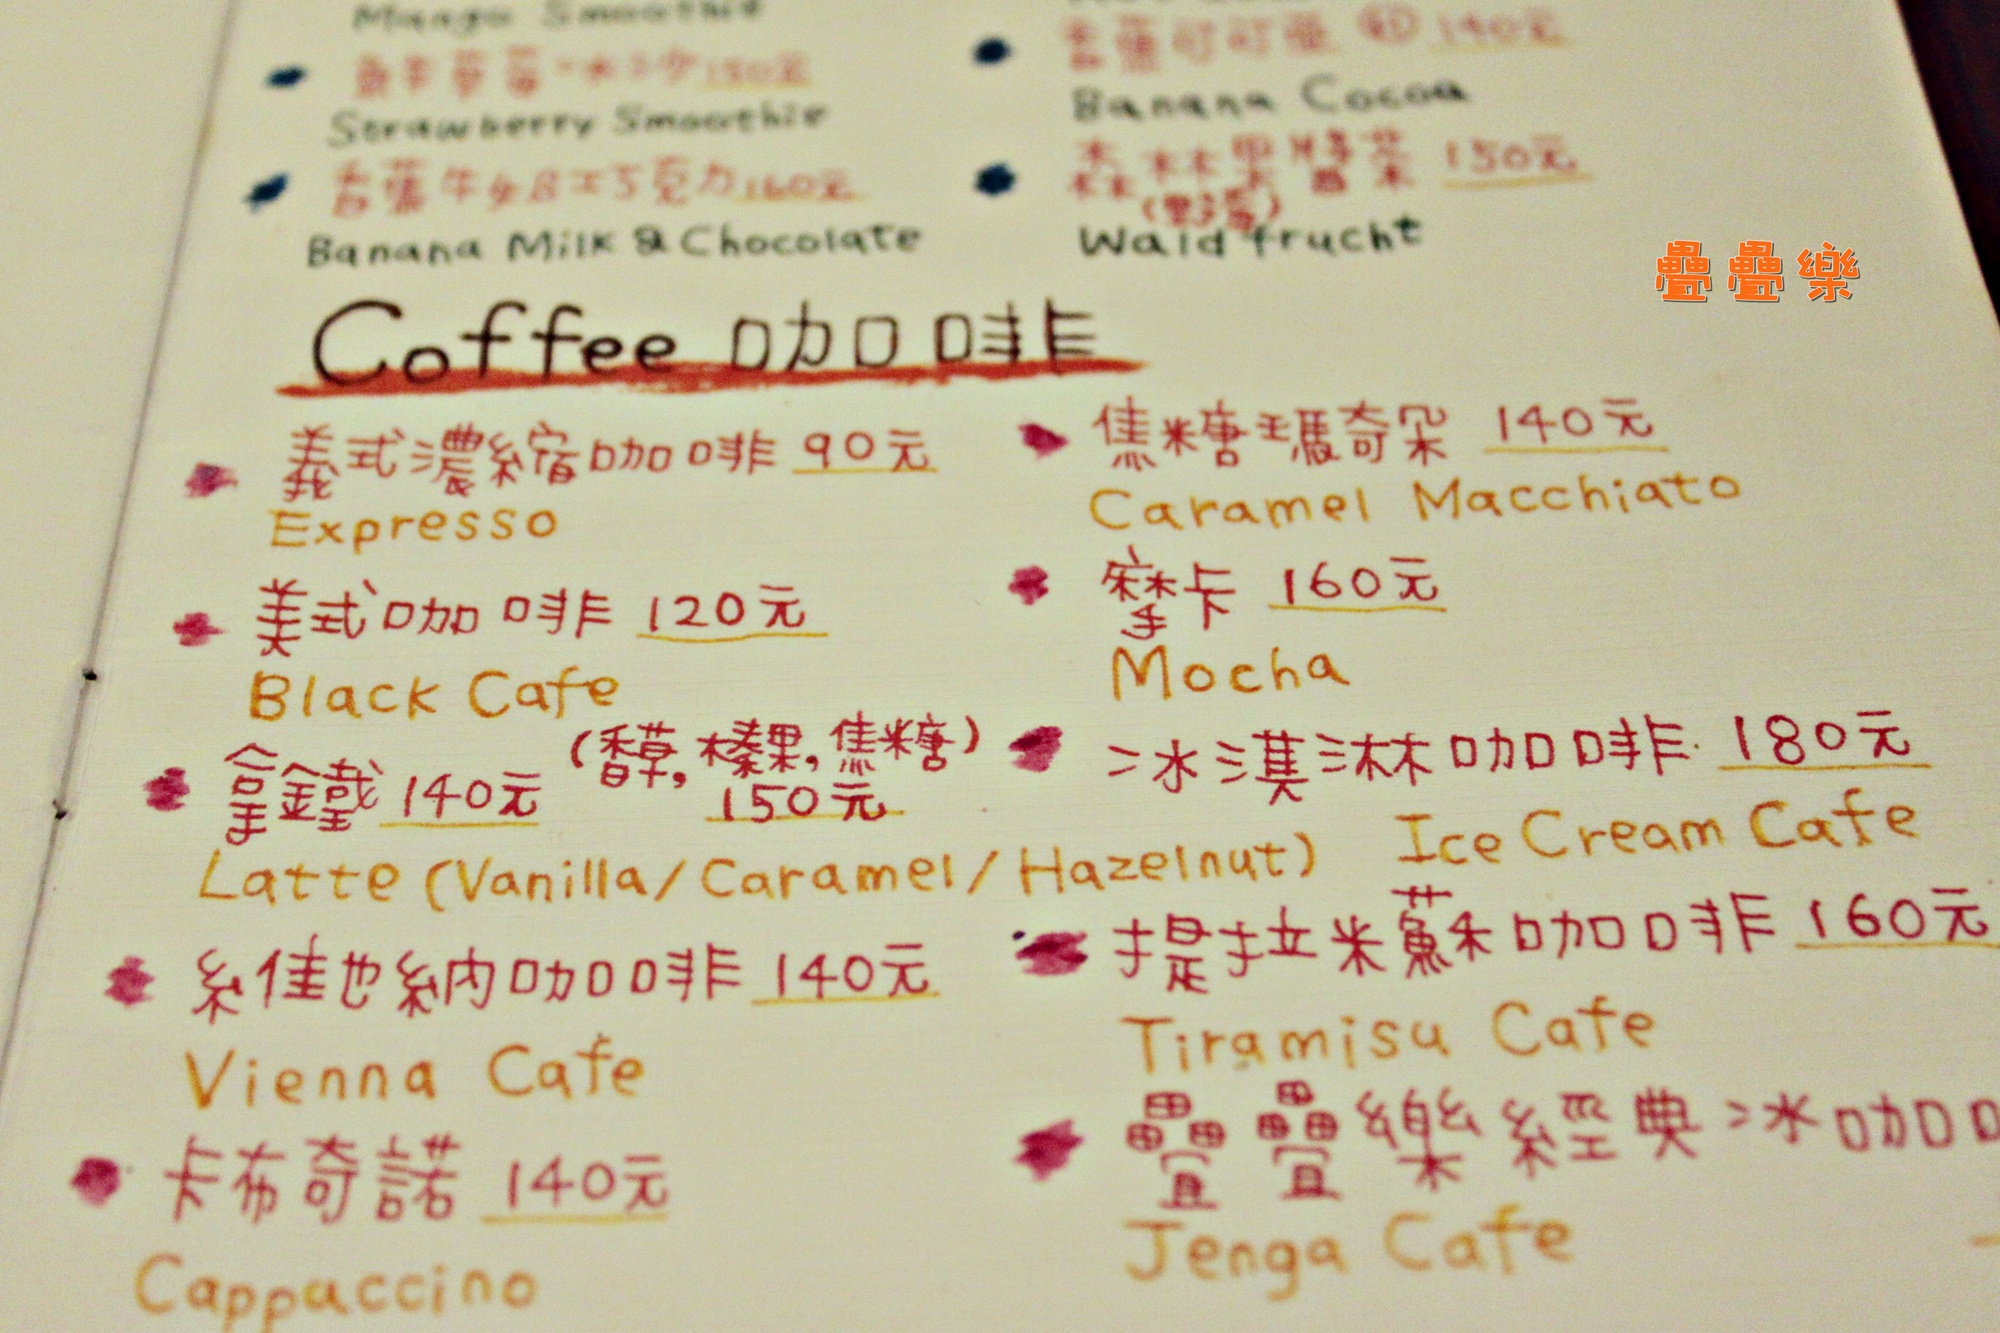 Mango Smoothie
新鮮草莓冰沙 150元
Strawberry Smoothie
香蕉牛奶巧克力 160元
Banana Milk & Chocolate
香蕉可可 140元
Banana Cocoa
森林果醬茶 150元
(野莓)
Waldfrucht
疊疊樂
Coffee 咖啡
義式濃縮咖啡 90元
Expresso
美式咖啡 120元
Black Cafe
拿鐵 140元 (香草,榛果,焦糖)
150元
Latte (Vanilla/Caramel/Hazelnut)
維也納咖啡 140元
Vienna Cafe
卡布奇諾 140元
Cappuccino
焦糖瑪奇朵 140元
Caramel Macchiato
摩卡 160元
Mocha
冰淇淋咖啡 180元
Ice Cream Cafe
提拉米蘇咖啡 160元
Tiramisu Cafe
疊疊樂經典冰咖
Jenga Cafe